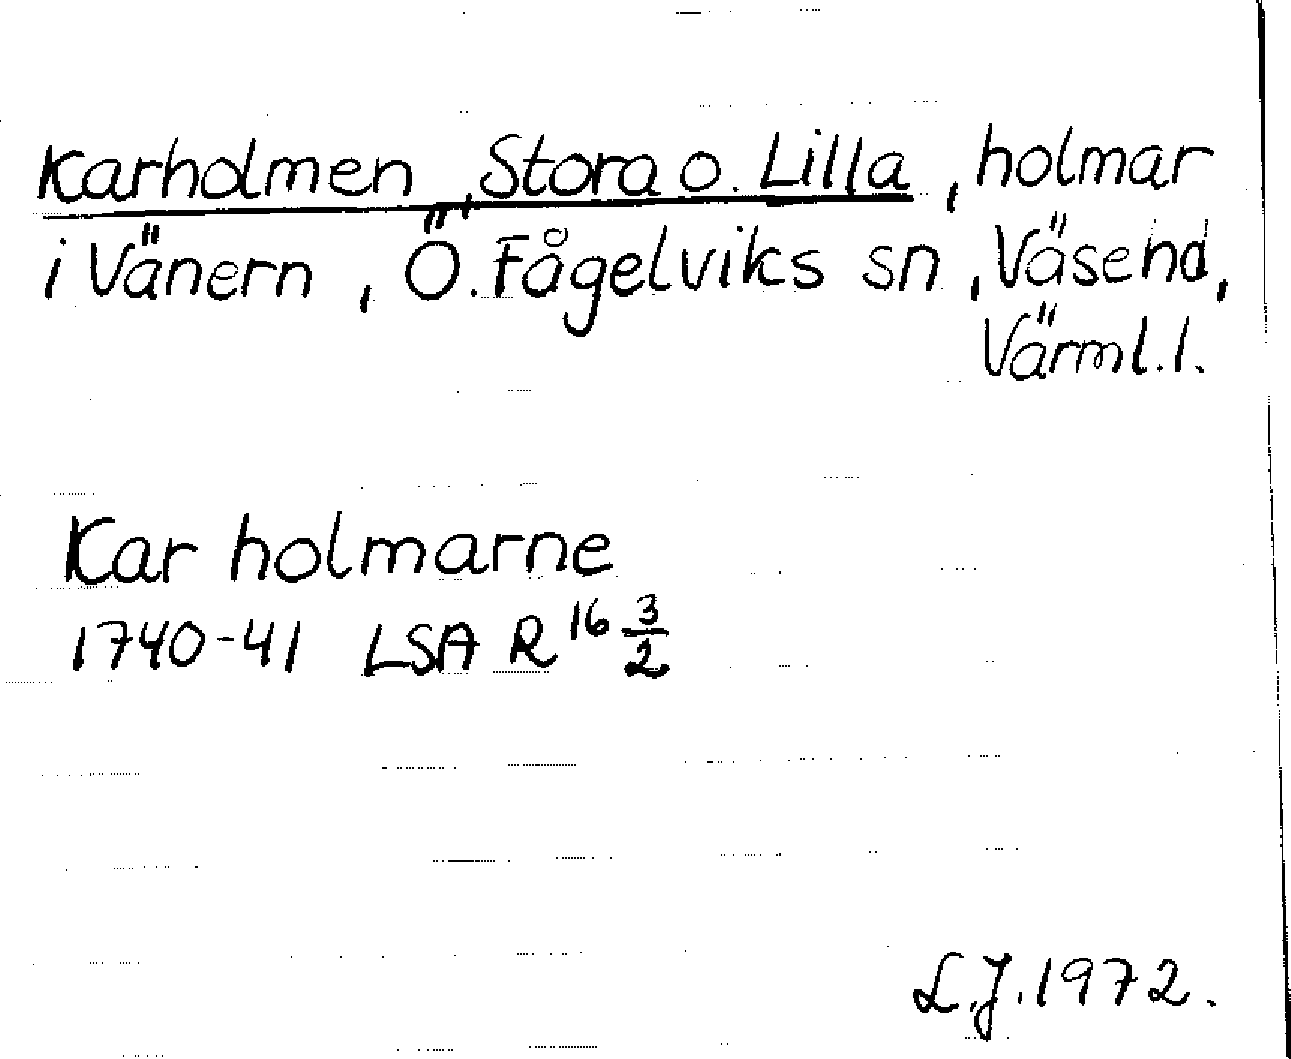 Karholmen, Stora o. Lilla, holmar
i Vänern, Ö. Fågelviks sn, Väsehd,
Värml.l.
Kar holmarne
1740-41 LSA R 16 3/2
L.J. 1972.